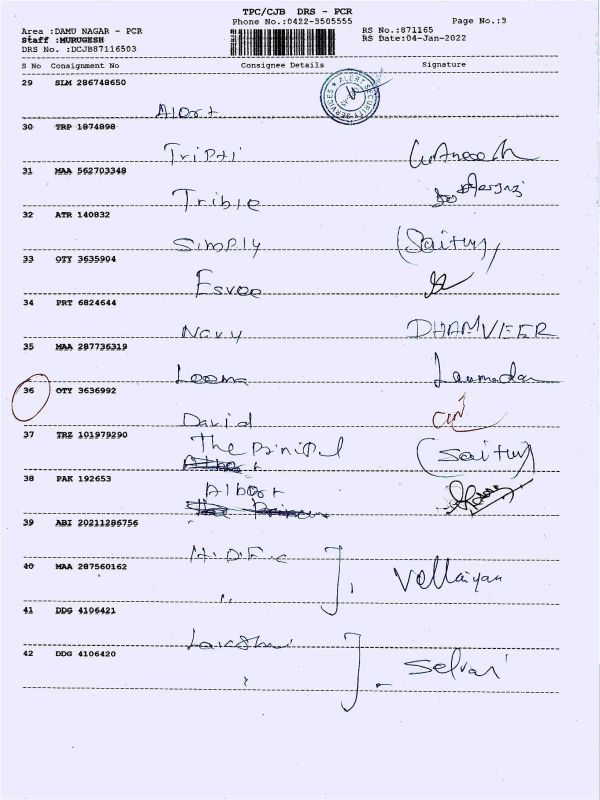 TPC/CJB DRS - PCR
Phone No.:0422-3505555 Page No.:3
Area :DAMU NAGAR - PCR RS No.:871165
Staff :MURUGESH RS Date:04-Jan-2022
DRS No. :DCJB87116503
S No Consignment No Consignee Details Signature
29 SLM 286748650
ALERT SECURITY SERVICES
Alort
30 TRP 1874898
Tripti
31 MAA 562703348
Trible
32 ATR 140832
Simply (Saitus)
33 OTY 3635904
Esvee
34 PRT 6824644
Navy DHAMVEER
35 MAA 287736319
Leema
36 OTY 3636992
David
37 TRZ 101979290
The Prinipl (Saitus)
38 PAK 192653
Albort
39 ABI 20211286756
H.D.F.C
40 MAA 287560162 Vellaiyan
,,
41 DDG 4106421
Lakshmi
42 DDG 4106420 Selvari